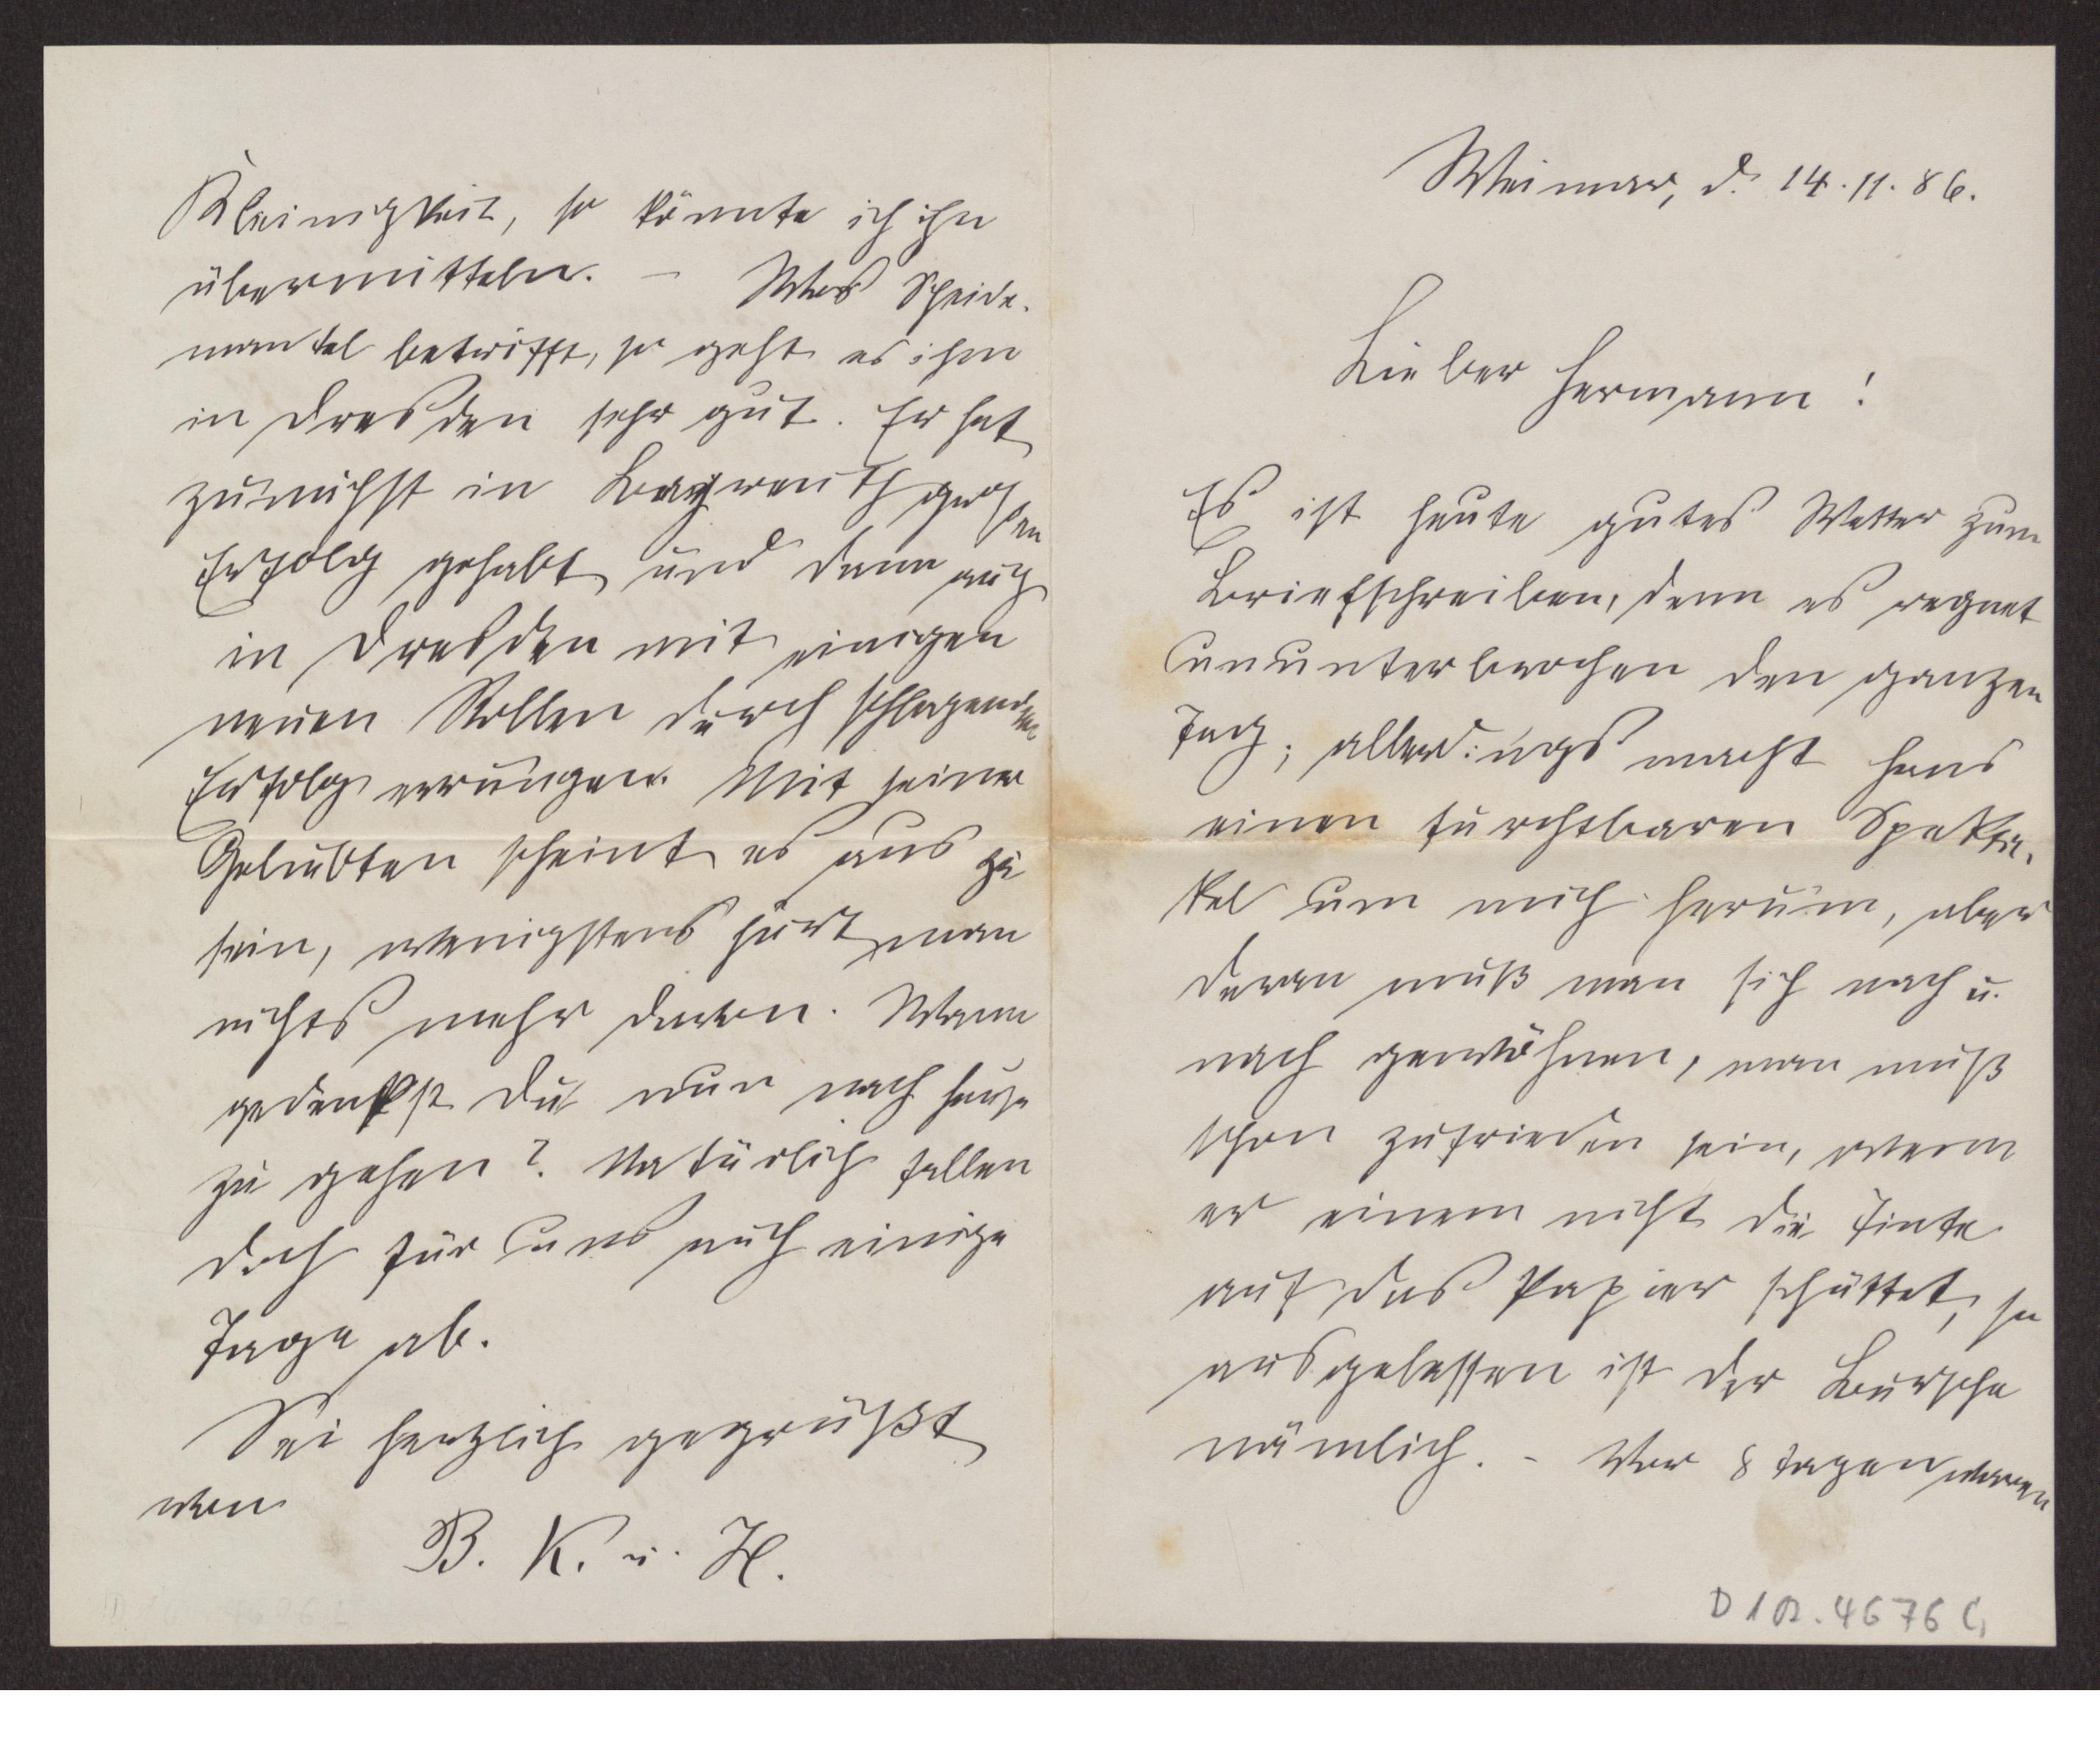 Weimar, d. 14.11.86.
Lieber Hermann!
Es ist heute gutes Wetter zum
Briefschreiben, denn es regnet
ununterbrochen den ganzen
Tag; allerdings macht Hans
einen furchtbaren Spekta-
kel um mich herum, aber
daran muß man sich nach u.
nach gewöhnen, man muß
schon zufrieden sein, wenn
er einem nicht die Tinte
auf das Papier schüttet, so
ausgelassen ist der Bursche
nämlich. - Vor 8 Tagen waren
D 1A. 4676 G
Kleinigkeit, so könnte ich ihn
übermitteln. - Was Scheide-
mantel betrifft, so geht es ihm
in Dresden sehr gut. Er hat
zunächst in Bayreuth großen
Erfolg gehabt und dann auch
in Dresden mit einigen
neuen Rollen durchschlagenden
Erfolg errungen. Mit seiner
Geliebten scheint es aus zu
sein, wenigstens hört man
nichts mehr davon. Wann
gedenkst Du nun nach Hause
zu gehen? Natürlich fallen
doch für uns auch einige
Tage ab.
Sei herzlich gegrüßt
von
B. K. u. H.